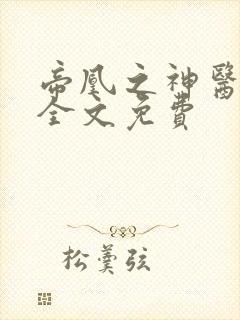 帝凰之神醫
全文免費
松羹弦